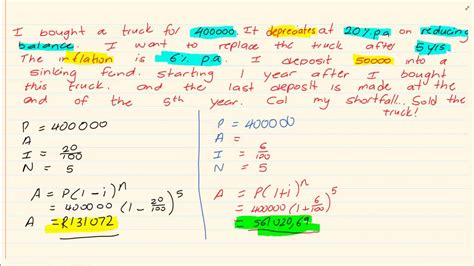 I bought a truck for 400000. It depreciates at 20% p.a on reducing
balance. I want to replace the truck after 5 yrs.
The inflation is 6% p.a. I deposit 50000 into a
sinking fund. starting 1 year after I bought
this truck. and the last deposit is made at the
end of the 5th year. Cal my shortfall. Sold the
truck!
P = 400000
A =
I = 20/100
N = 5
A = P(1-i)^n
= 400000(1-20/100)^5
A = R131072
P = 400000
A =
I = 6/100
N = 5
A = P(1+i)^n
= 400000(1+6/100)^5
= 561020,69